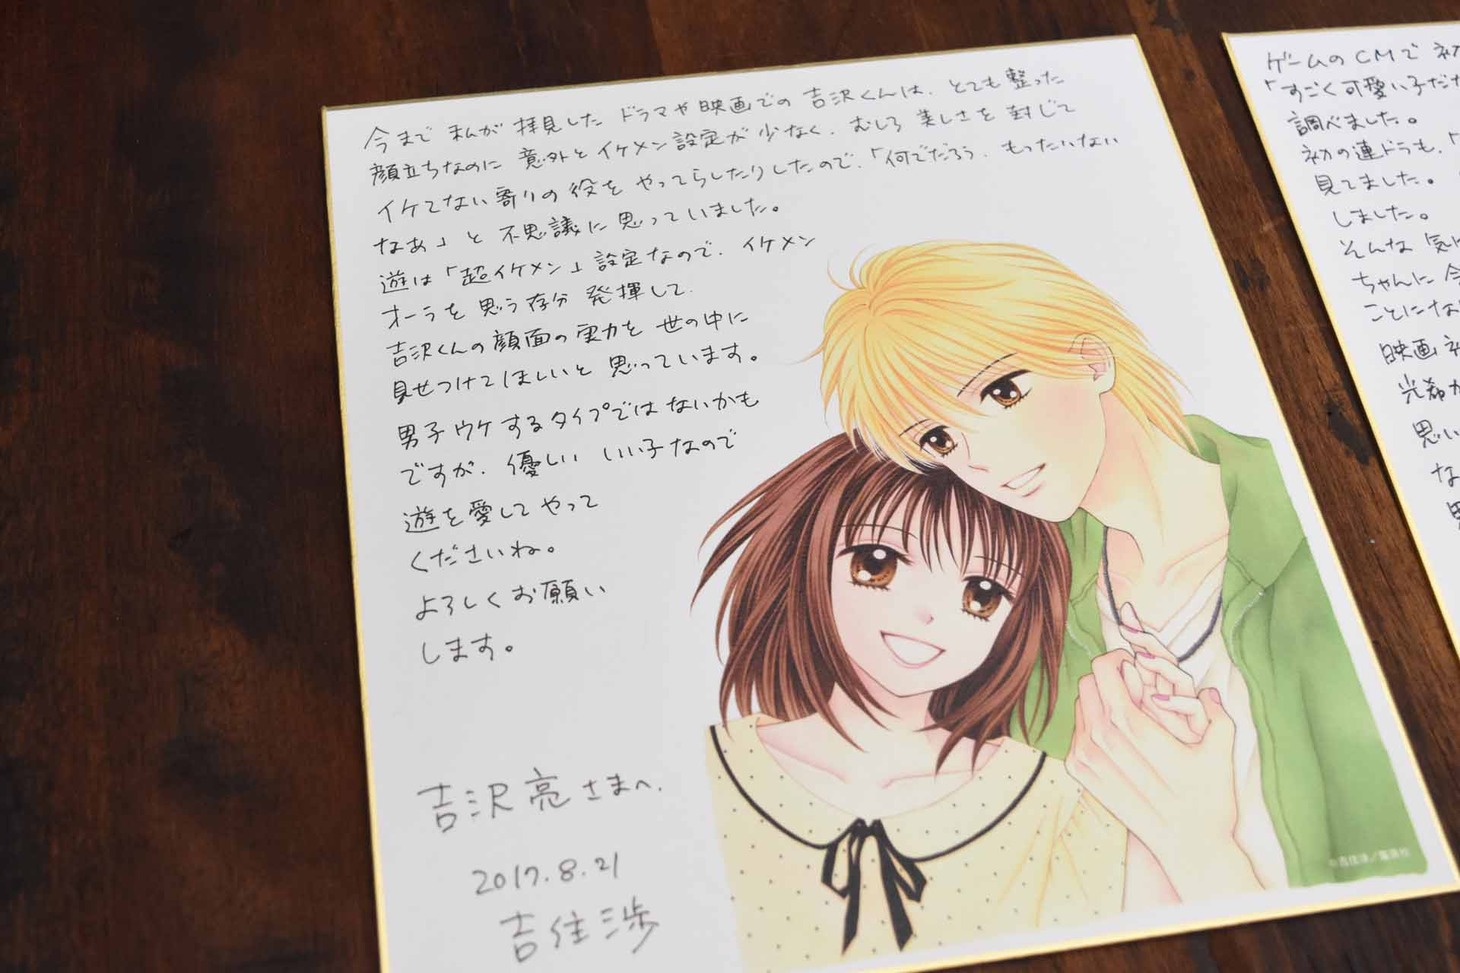 今まで私が拝見したドラマや映画での吉沢くんは、とても整った
顔立ちなのに意外とイケメン設定が少なく、むしろ美しさを封じて
イケてない寄りの役をやってらしたりしたので、「何でだろう、もったいない
なあ」と不思議に思っていました。
遊は「超イケメン」設定なので、イケメン
オーラを思う存分発揮して、
吉沢くんの顔面の実力を世の中に
見せつけてほしいと思っています。
男子ウケするタイプではないかも
ですが、優しいいい子なので
遊を愛してやって
くださいね。
よろしくお願い
します。
吉沢亮さまへ.
2017.8.21
吉住渉
©吉住渉／集英社
ゲームのCMで初
「すごく可愛い子だ
調べました。
初の連ドラも、「
見てました。
しました。
そんな気
ちゃんに今
ことにな
映画初
光希が
思い
な